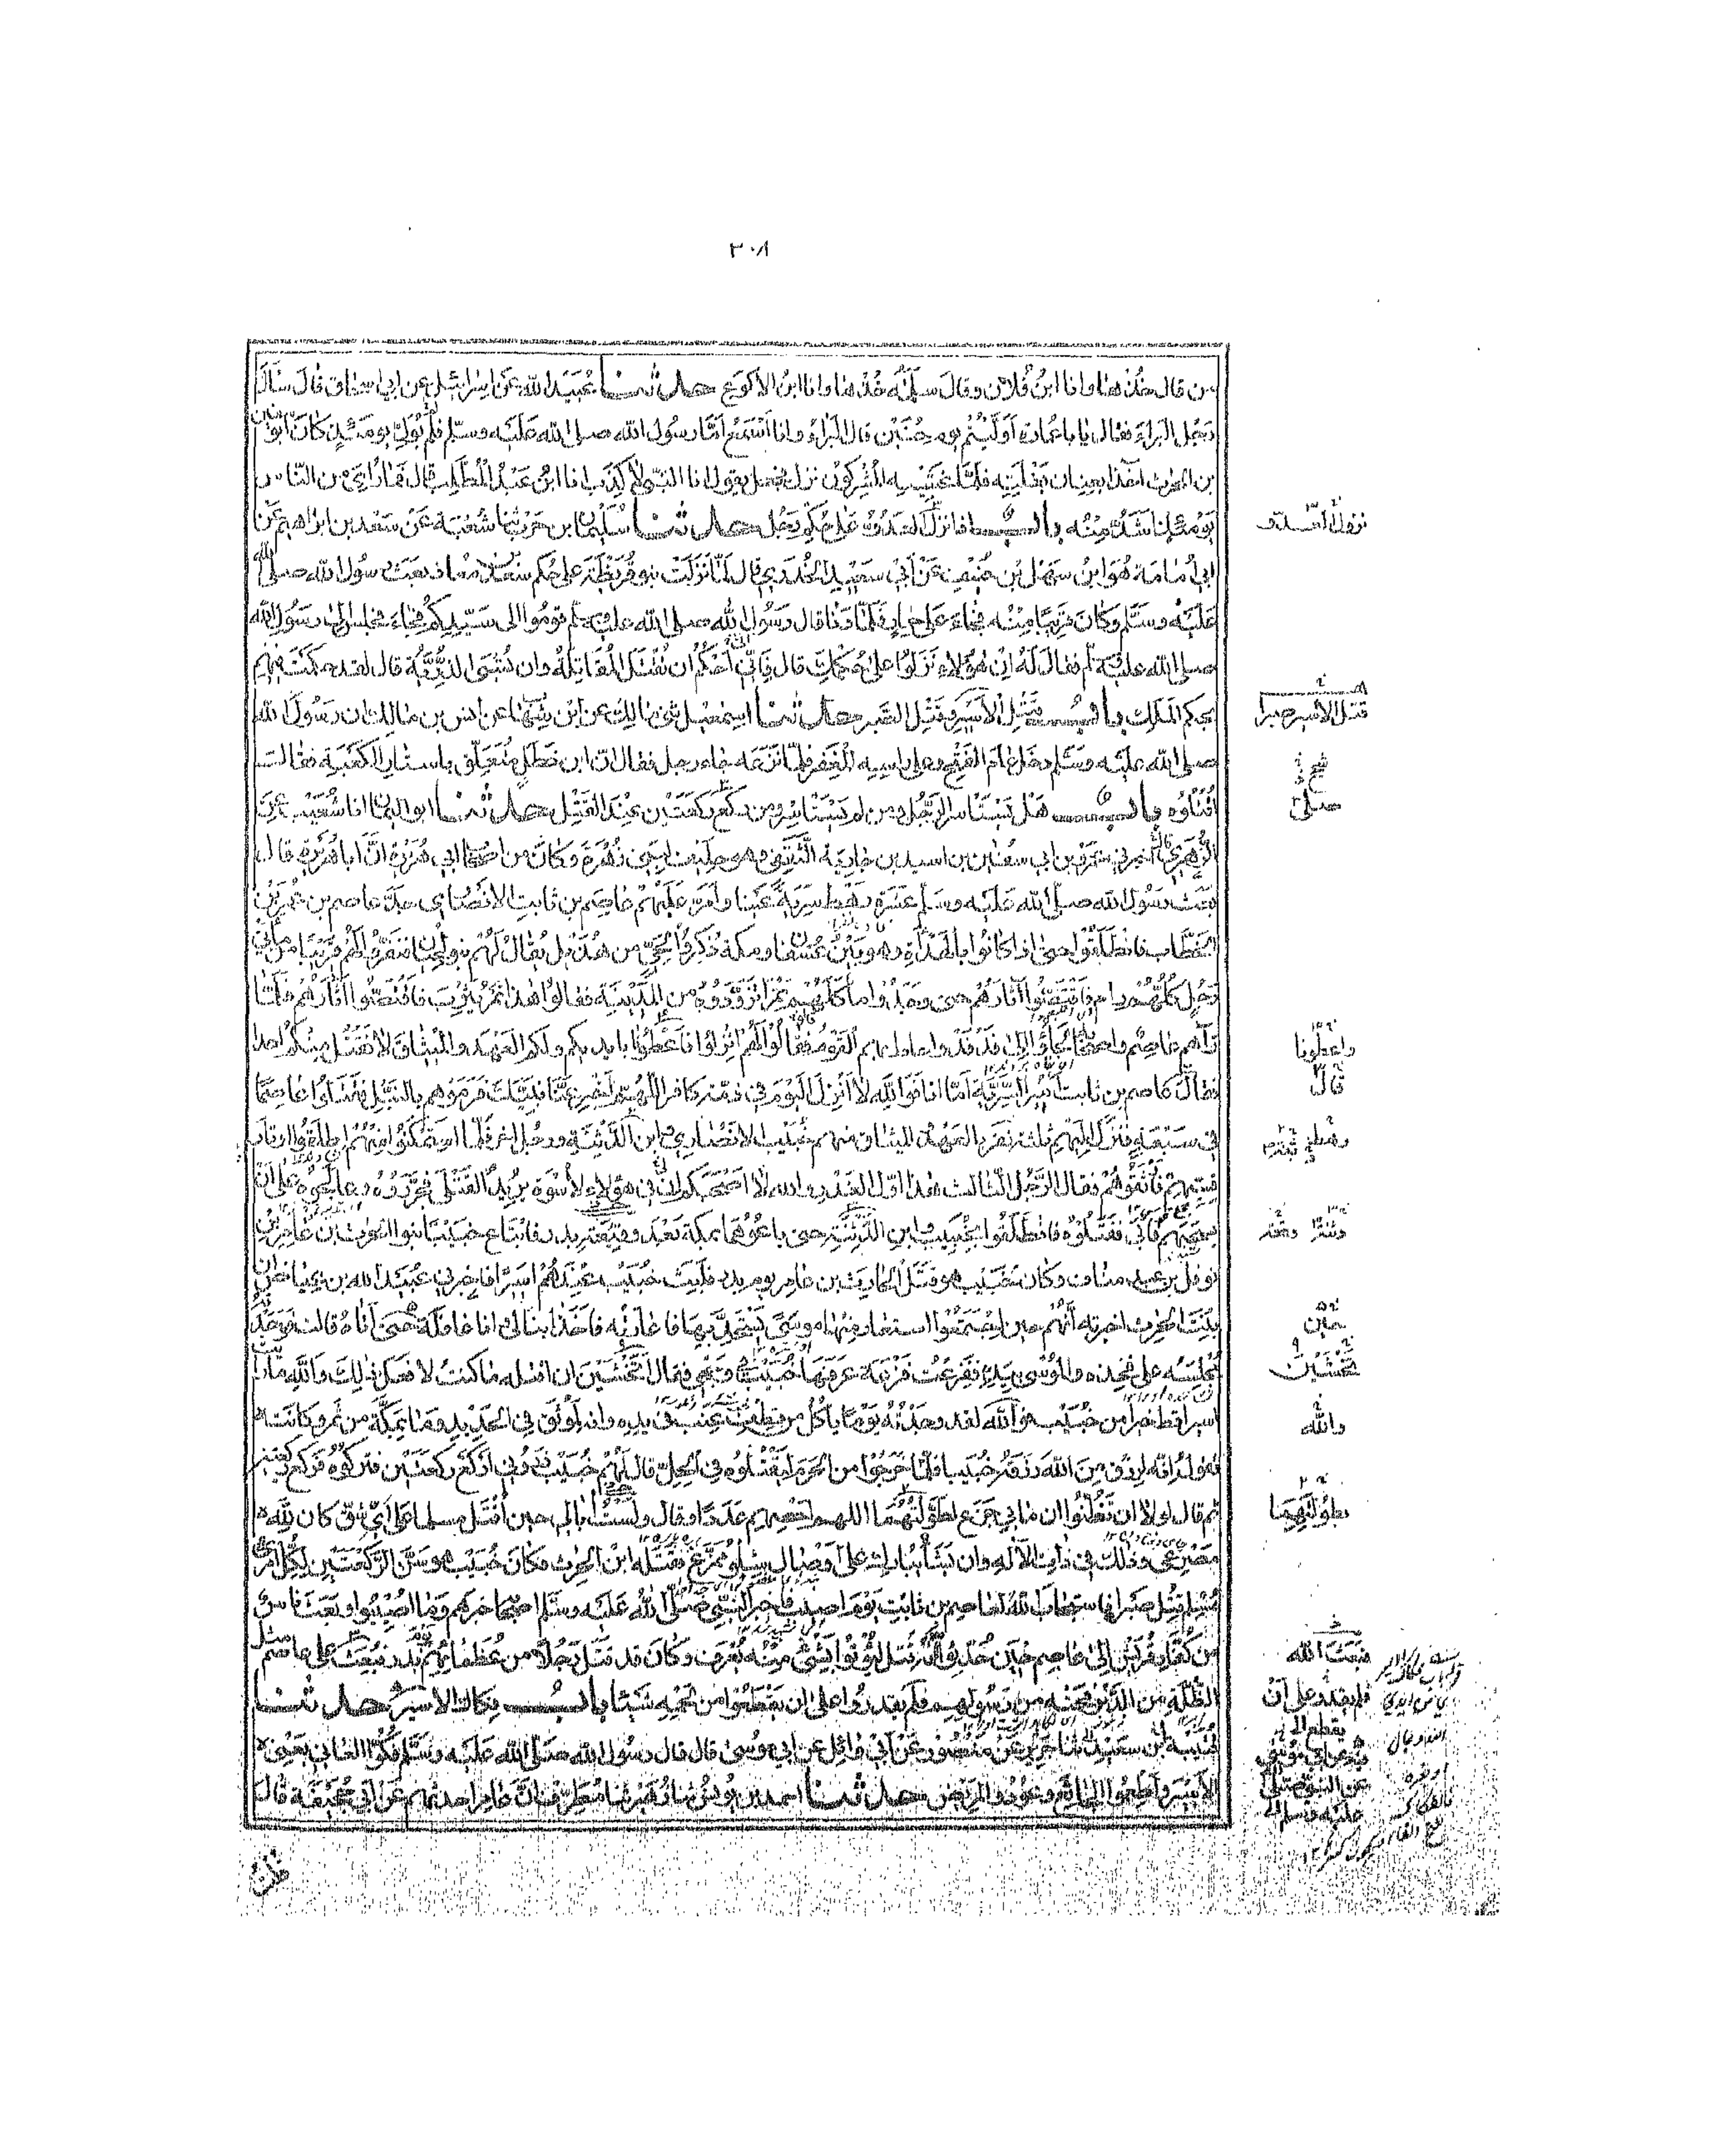 ٣٠٨
من قال خذها وانا ابن فلان وقال سلمة خذها وانا ابن الاكوع حدثنا عبيد الله عن اسرائيل عن ابي اسحاق قال سأل
رجل البراء فقال يا با عمارة أوليتم يوم حنين قال البراء وانا اسمع اما رسول الله صلى الله عليه وسلم فلم يول يومئذ كان ابو سفين
بن الحرث اخذا بعنان بغلته فلما غشيه المشركون نزل فجعل يقول انا النبي لا كذب انا ابن عبد المطلب قال فما رائي من الناس
يومئذ اشد منه باب اذا نزل العدو على حكم رجل حدثنا سليمان بن حرب ثنا شعبة عن سعد بن ابراهيم عن
ابي امامة هو ابن سهل بن حنيف عن ابي سعيد الخدري قال لما نزلت بنو قريظة على حكم سعد بن معاذ بعث رسول الله صلى الله
عليه وسلم وكان قريبا منه فجاء على حمار فلما دنا قال رسول الله صلى الله عليه وسلم قوموا الى سيدكم فجاء فجلس الى رسول الله
صلى الله عليه وسلم فقال له ان هؤلاء نزلوا على حكمك قال فاني احكم ان تقتل المقاتلة وان تسبى الذرية قال لقد حكمت فيهم
بحكم الملك باب قتل الاسير وقتل الصبر حدثنا اسمعيل ثني مالك عن ابن شهاب عن انس بن مالك ان رسول الله
صلى الله عليه وسلم دخل عام الفتح وعلى راسه المغفر فلما نزعه جاء رجل فقال ان ابن خطل متعلق باستار الكعبة فقال
اقتلوه باب هل يستأسر الرجل ومن لم يستأسر ومن ركع ركعتين عند القتل حدثنا ابو اليمان انا شعيب عن
الزهري اخبرني عمرو بن ابي سفين بن اسيد بن جارية الثقفي وهو حليف لبني زهرة وكان من اصحاب ابي هريرة ان ابا هريرة قال
بعث رسول الله صلى الله عليه وسلم عشرة رهط سرية عينا وامر عليهم عاصم بن ثابت الانصاري جد عاصم بن عمر بن
الخطاب فانطلقوا حتى اذا كانوا بالهدأة وهو بين عسفان ومكة ذكروا لحي من هذيل يقال لهم بنو لحيان فنفروا لهم قريبا من مائتي
رجل كلهم رام فاقتصوا آثارهم حتى وجدوا مأكلهم تمرا تزودوه من المدينة فقالوا هذا تمر يثرب فاقتصوا آثارهم فلما
رآهم عاصم واصحابه لجاؤا الى فدفد واحاط بهم القوم فقالوا لهم انزلوا فاعطونا بايديكم ولكم العهد والميثاق لا نقتل منكم احدا
فقال عاصم بن ثابت امير السرية اما انا فوالله لا انزل اليوم في ذمة كافر اللهم اخبر عنا نبيك فرموهم بالنبل فقتلوا عاصما
في سبعة فنزل اليهم ثلثة نفر بالعهد والميثاق منهم خبيب الانصاري وابن الدثنة ورجل اخر فلما استمكنوا منهم اطلقوا اوتار
قسيهم فأوثقوهم فقال الرجل الثالث هذا اول الغدر والله لا اصحبكم ان في هؤلاء لأسوة يريد القتلى فجرروه وعالجوه على ان
يصحبهم فأبى فقتلوه فانطلقوا بخبيب وابن الدثنة حتى باعوهما بمكة بعد وقيعة بدر فابتاع خبيبا بنو الحرث بن عامر بن
نوفل بن عبد مناف وكان خبيب هو قتل الحارث بن عامر يوم بدر فلبث خبيب عندهم اسيرا فاخبرني عبيد الله بن عياض ان
بنت الحرث اخبرته انهم حين اجتمعوا استعار منها موسى يستحد بها فاعارته فاخذ ابنا لي وانا غافلة حتى اتاه قالت فوجدته
مجلسه على فخذه والموسى بيده ففزعت فزعة عرفها خبيب في وجهي فقال تخشين ان اقتله ما كنت لافعل ذلك والله ما رأيت
اسيرا قط خيرا من خبيب والله لقد وجدته يوما يأكل من قطف عنب في يده وانه لموثق في الحديد وما بمكة من ثمر وكانت
تقول انه لرزق من الله رزقه خبيبا فلما خرجوا من الحرم ليقتلوه في الحل قال لهم خبيب ذروني اركع ركعتين فتركوه فركع ركعتين
ثم قال لولا ان تظنوا ان ما بي جزع لطولتهما اللهم احصهم عددا وقال ولست ابالي حين اقتل مسلما على اي شق كان لله
مصرعي وذلك في ذات الاله وان يشأ يبارك على اوصال شلو ممزع فقتله ابن الحرث فكان خبيب هو سن الركعتين لكل امرئ
مسلم قتل صبرا فاستجاب الله لعاصم بن ثابت يوم اصيب فاخبر النبي صلى الله عليه وسلم اصحابه خبرهم وما اصيبوا وبعث ناس
من كفار قريش الى عاصم حين حدثوا انه قتل ليؤتوا بشيء منه يعرف وكان قد قتل رجلا من عظمائهم يوم بدر فبعث على عاصم مثل
الظلة من الدبر فحمته من رسولهم فلم يقدروا على ان يقطعوا من لحمه شيئا باب فكاك الاسير حدثنا
قتيبة بن سعيد ثنا جرير عن منصور عن ابي وائل عن ابي موسى قال قال رسول الله صلى الله عليه وسلم فكوا العاني يعني
الاسير واطعموا الجائع وعودوا المريض حدثنا احمد بن يونس ثنا زهير ثنا مطرف ان عامرا حدثهم عن ابي جحيفة قال
قتل الاسير صبرا
واعطونا
قال
تخشين
والله
لطولتهما
فبعث الله
فلم يقدر على ان
يقطع
عن النبي صلى
عليه وسلم
قلت